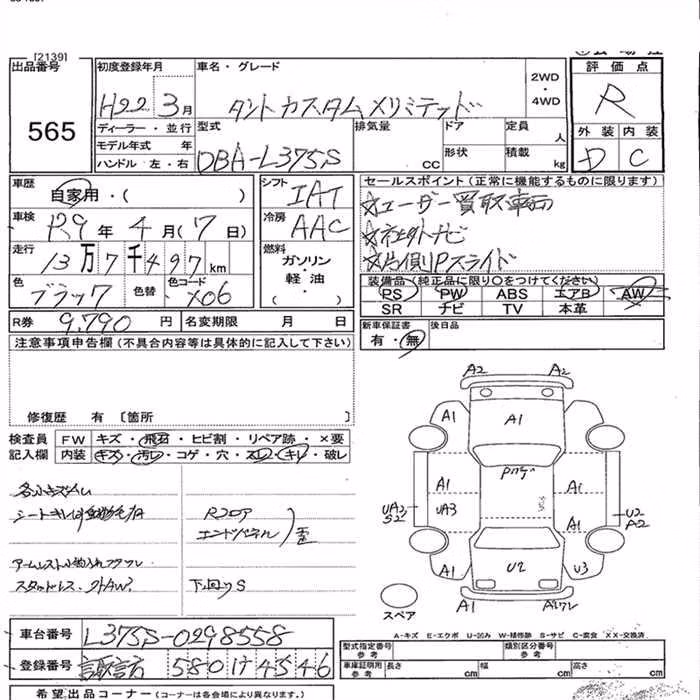 [2139]
出品番号
565
初度登録年月
H22 3月
車名・グレード
タントカスタムXリミテッド
2WD
・
4WD
評価点
R
外装 内装
D C
ディーラー・並行
モデル年式 年
ハンドル 左・右
型式
DBA-L375S
排気量
CC
ドア
形状
定員
人
積載
kg
車歴
自家用・( )
シフト
IAT
車検
R9年 4月(17日)
冷房
AAC
走行
13万7千497km
燃料
ガソリン
・
軽油
・
( )
色
ブラック
色替
色コード
X06
R券
9,790円
名変期限 月 日
セールスポイント(正常に機能するものに限ります)
☆ユーザー買取車両
☆社外ナビ
☆片側Pスライド
装備品(純正品に限り○をつけてください)
PS PW ABS エアB AW
SR ナビ TV 本革
新車保証書
有・無
後日品
注意事項申告欄(不具合内容等は具体的に記入して下さい)
修復歴 有 〔箇所 〕
検査員
記入欄
FW キズ・飛石・ヒビ割・リペア跡・×要
内装 キズ・汚レ・コゲ・穴・スレ・キレ・破レ
各小キズハゲ
アームレスト小物入れフタワレ
スタッドレス・外AW
Rフロア
エンドパネル
歪
下回りS
A2 A2
A1 A1 A1
Pハゲ
A1 A1
UA2
S2
UA3
U2
A2
A1
A1 U2 U3
A1 A1ワレ
スペア
A-キズ E-エクボ U-凹み W-補修跡 S-サビ C-腐食 XX-交換済
車台番号
L375S-0298558
登録番号
諏訪 580 け 4546
型式指定番号
類別区分番号
車庫証明用
参考
長さ cm
幅 cm
高さ cm
希望出品コーナー(コーナーは各会場により異なります。)